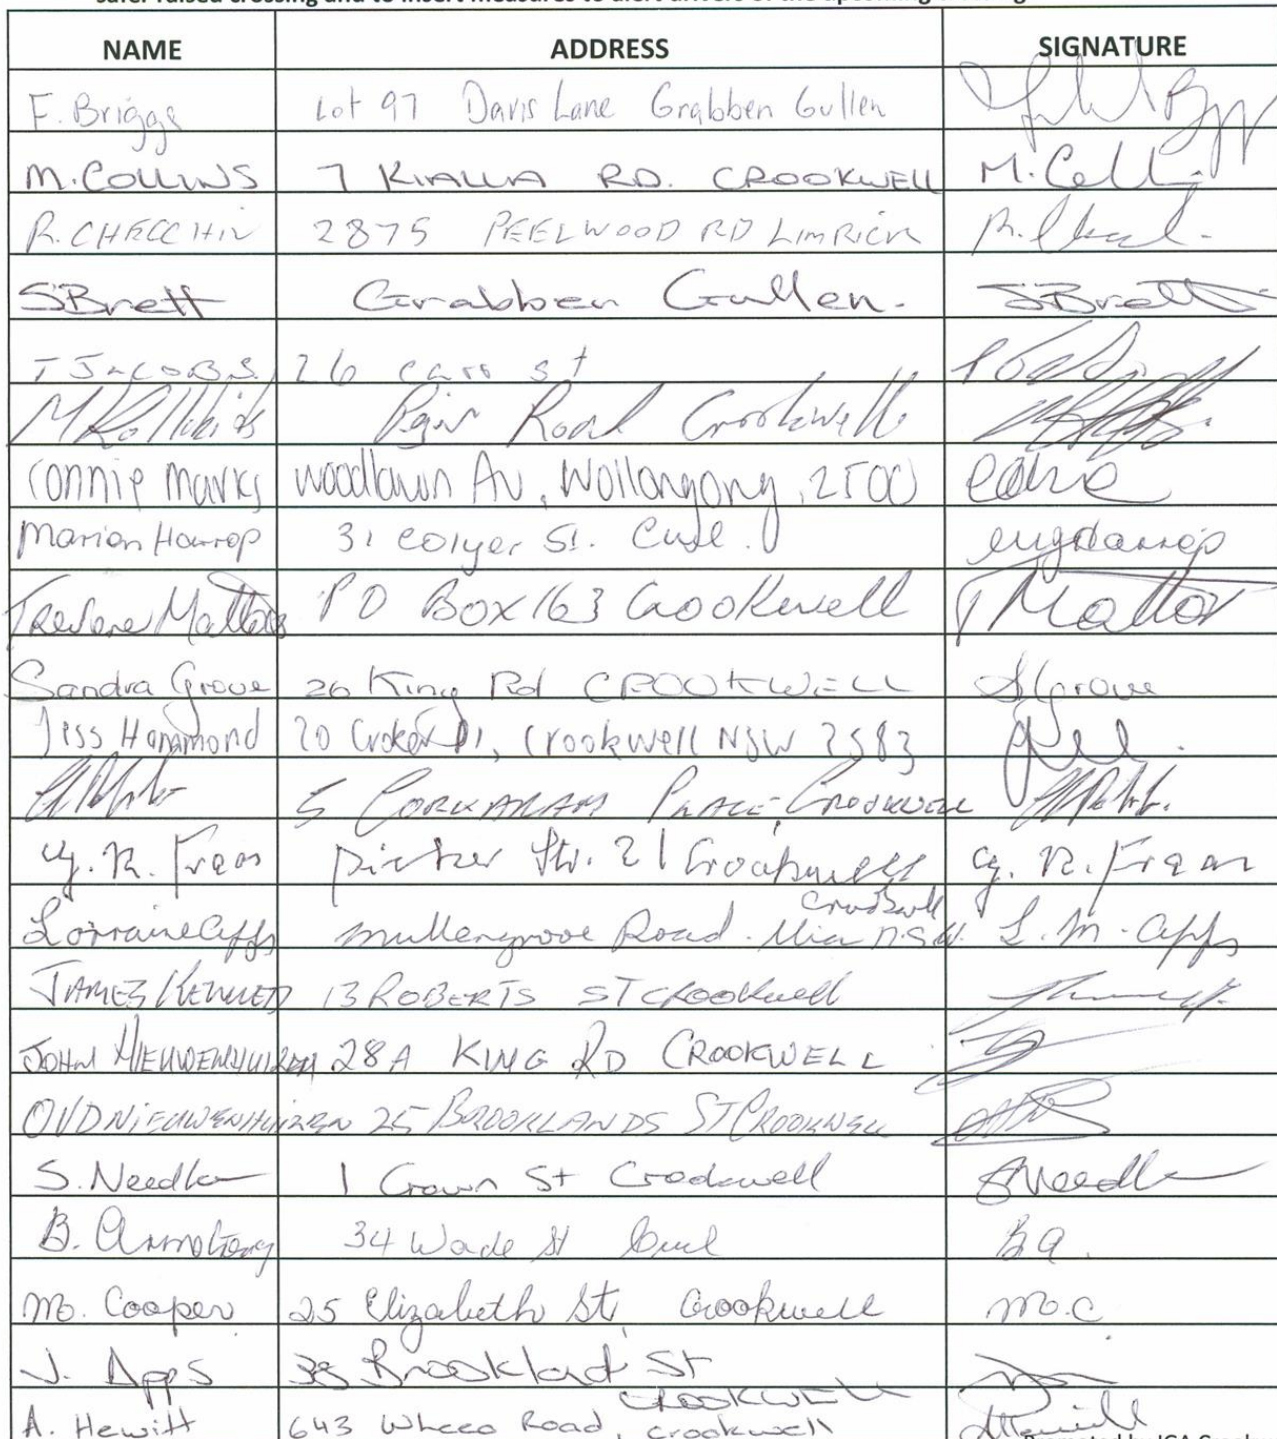 safer raised crossing and to insert measures to alert drivers of the upcoming crossing
NAME ADDRESS SIGNATURE
F. Briggs Lot 97 Davis Lane Grabben Gullen
M. COLLINS 7 KIALLA RD. CROOKWELL M. Coll
R. CHECCHIN 2875 PEELWOOD RD LIMRICK
SBrett Grabben Gullen. SBrett
T JACOBS. 26 carr st
Road Crookwell
Connie Marks Woodlawn Av, Wollongong, 2500
Marion Harrop 31 Colyer St. Cwell.
Mattox PO Box 163 Crookwell TMattox
Sandra Grove 26 King Rd CROOKWELL SGrove
Jess Hammond 20 Crok, Crookwell NSW 2583
5 PLACE, CROOKWELL
G. R. Frean 21 Crookwell G. R. Frean
Crookwell
Lorraine Apps Road. N.S.W. L. M. Apps
JAMES KENNEDY 13 ROBERTS ST Crookwell
JOHN NIEUWENHUIZEN 28A KING RD CROOKWELL
OVD NIEUWENHUIZEN 25 BROOKLANDS ST CROOKWELL
S. Needham 1 Crown St Crookwell
B. Armstrong 34 Wade St BA.
M. Cooper 25 Elizabeth St, Crookwell M.C
J. Apps 38 Brookland St
CROOKWELL
A. Hewitt 643 Wheeo Road, Crookwell